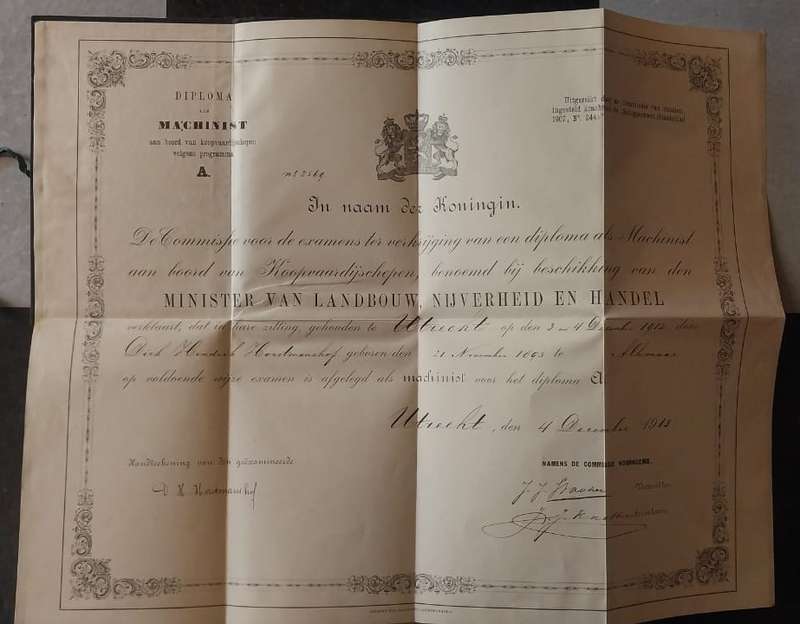 DIPLOMA
ALS
MACHINIST
aan boord van koopvaardijschepen
volgens programma
A.
Uitgereikt door de Commissie van
ingesteld krachtens
1907, Nº.
nº 2569
In naam der Koningin.
De Commissie voor de examens ter verkrijging van een diploma als Machinist
aan boord van Koopvaardijschepen, benoemd bij beschikking van den
MINISTER VAN LANDBOUW, NIJVERHEID EN HANDEL
verklaart, dat in hare zitting, gehouden te Utrecht op den 3 en 4 December door
Dirk Hendrik Horstmanshof geboren den 21 November te Alkmaar
op voldoende wijze examen is afgelegd als machinist voor het diploma A.
Utrecht, den 4 December 1913
Handteekening van den geëxamineerde
D H Horstmanshof
NAMENS DE COMMISSIE VOORNOEMD,
J. J.
Voorzitter